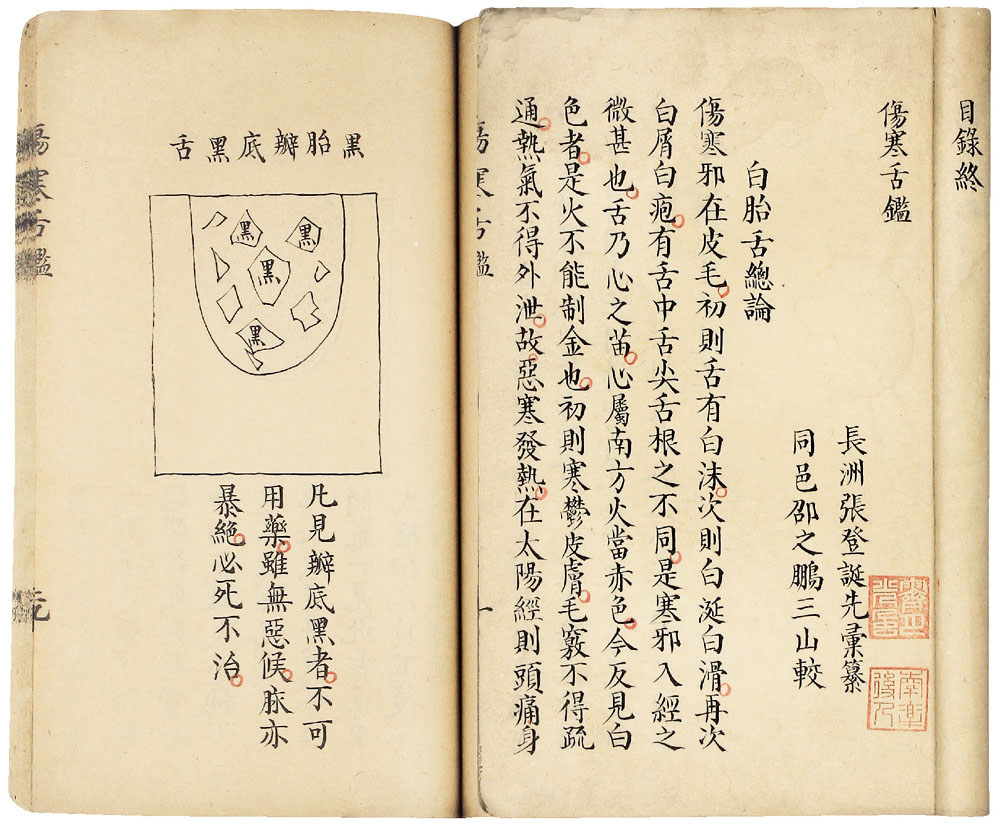 目錄終
傷寒舌鑑
長洲張登誕先彙纂
同邑邵之鵬三山較
白胎舌總論
傷寒邪在皮毛初則舌有白沫次則白涎白滑再次
白屑白疱有舌中舌尖舌根之不同是寒邪入經之
微甚也舌乃心之苗心屬南方火當赤色今反見白
色者是火不能制金也初則寒鬱皮膚毛竅不得疏
通熱氣不得外泄故惡寒發熱在太陽經則頭痛身
傷寒舌鑑
一
黑胎瓣底黑舌
黑
黑
黑
黑
凡見瓣底黑者不可
用藥雖無惡候脉亦
暴絕必死不治
傷寒舌鑑